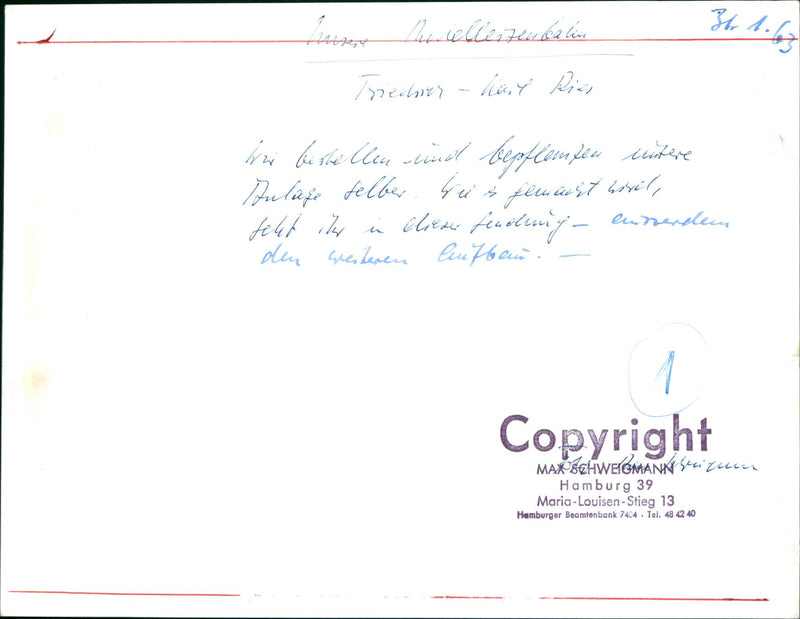 Unsere Modelleisenbahn
1.63
Friedrich-Karl Ries
Wir bestellen und bepflanzen unsere
Anlage selber. Wie es gemacht wird,
seht ihr in dieser Sendung – ausserdem
den weiteren Aufbau. –
1
Copyright
MAX SCHWEIGMANN
Hamburg 39
Maria-Louisen-Stieg 13
Hamburger Beamtenbank · Tel. 48 42 40